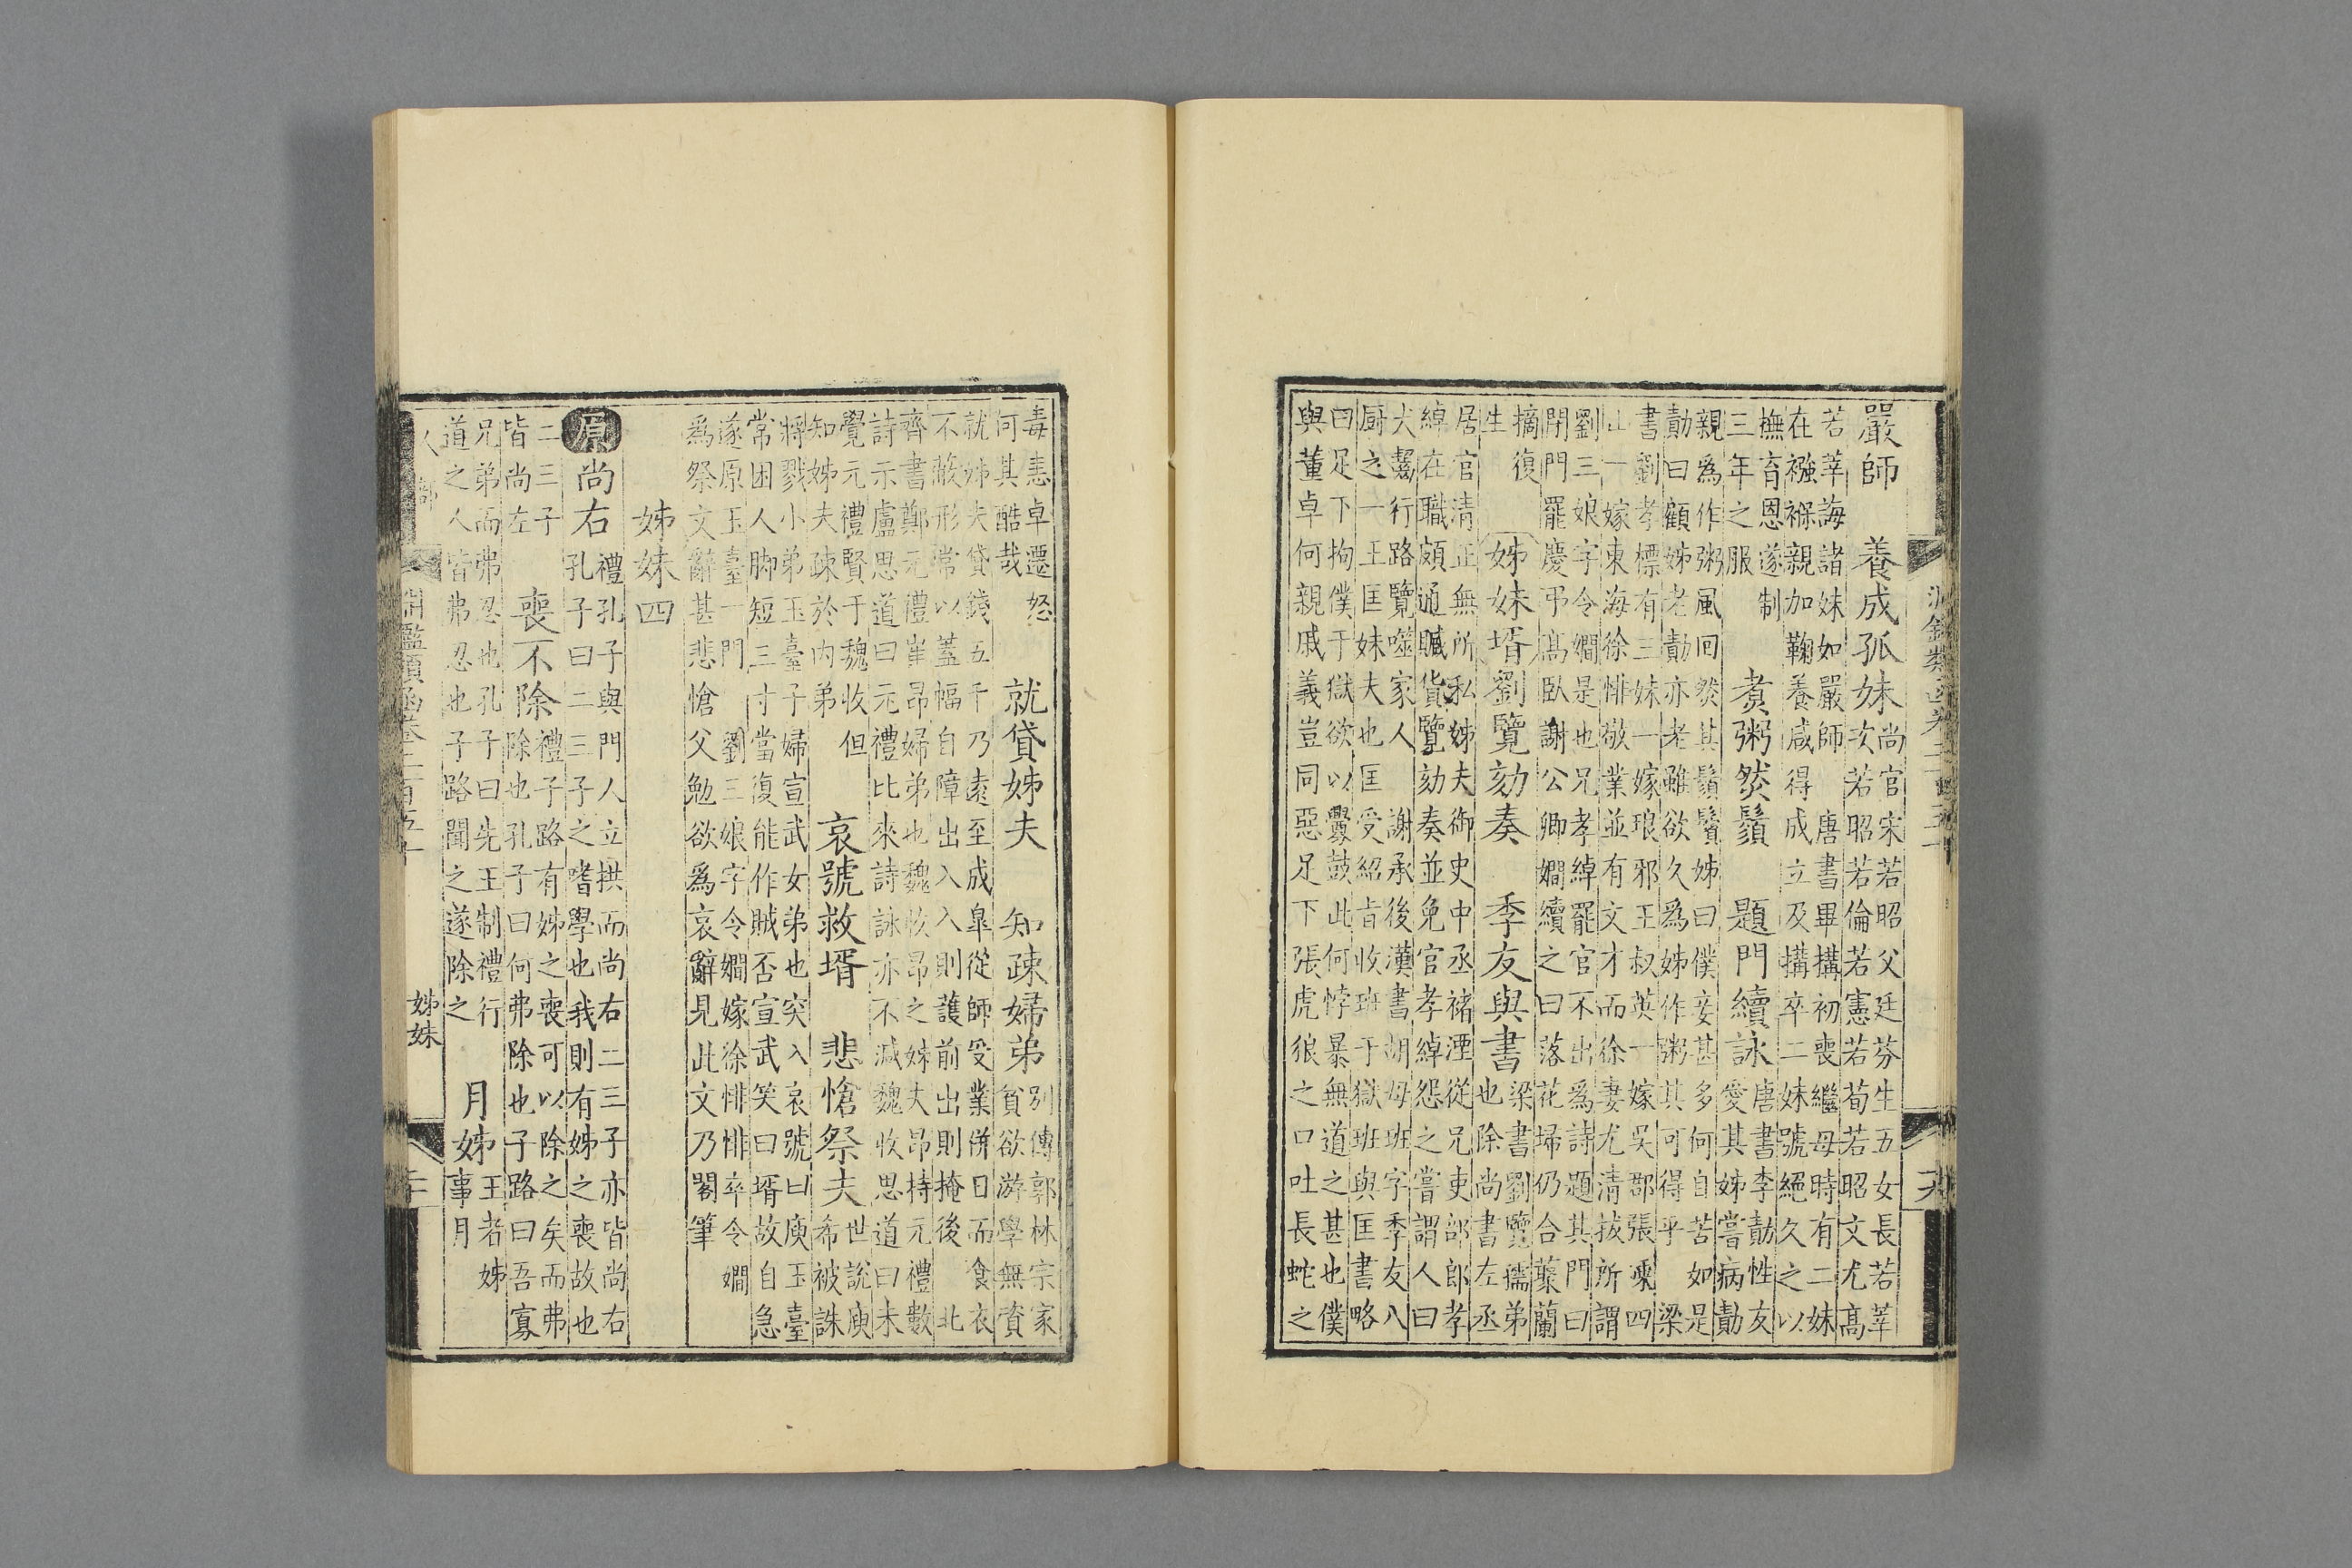 嚴師　養成孤妹尚官宋若昭父廷芬生五女長若莘
次若昭若倫若憲若荀若昭文尤高
若莘誨諸妹如嚴師　唐書畢搆初喪繼母時有二妹
在襁褓親加鞠養咸得成立及搆卒二妹號絕久之以
撫育恩遂制
三年之服　煑粥燃鬚　題門續詠唐書李勣性友
愛其姊嘗病勣
親爲作粥風回燃其鬚鬢姊曰僕妾甚多何自苦如是
勣曰顧姊老勣亦老雖欲久爲姊作粥其可得乎　梁
書劉孝標有三妹一嫁琅邪王叔英一嫁吳郡張四
山一嫁東海徐悱敬業並有文才而徐妻尤清拔所謂
劉三娘字令嫺是也兄孝綽罷官不出爲詩題其門曰
閉門罷慶弔高臥謝公卿嫺續之曰落花埽仍合藂蘭
摘復
生　姊妹壻劉覽劾奏　季友與書梁書劉覽孺弟
也除尚書左丞
居官清正無所私姊夫御史中丞褚湮從兄吏部郎孝
綽在職頗通贓貨覽劾奏並免官孝綽怨之嘗謂人曰
犬齧行路覽噬家人　謝承後漢書胡母班字季友八
厨之一王匡妹夫也匡受紹旨收班于獄班與匡書略
曰足下拘僕于獄欲以釁鼓此何悖暴無道之甚也僕
與董卓何親戚義豈同惡足下張虎狼之口吐長蛇之
毒恚卓遷怒
何其酷哉　就貸姊夫　知疎婦弟別傳郭林宗家
貧欲游學無資
就姊夫貸錢五千乃遠至成皐從師受業併日而食衣
不蔽形常以蓋幅自障出入入則護前出則掩後　北
齊書鄭元禮崔昂婦弟也魏收昂之妹夫昂持元禮數
詩示盧思道曰元禮比來詩詠亦不減魏收思道曰未
覺元禮賢于魏收但
知姊夫疎於內弟　哀號救壻　悲愴祭夫世說庾
希被誅
將戮小弟玉臺子婦宣武女弟也突入哀號曰庾玉臺
常困人脚短三寸當復能作賊否宣武笑曰壻故自急
遂原玉臺一門　劉三娘字令嫺嫁徐悱悱卒令嫺
爲祭文辭甚悲愴父勉欲爲哀辭見此文乃閣筆
姊妹四
原尚右禮孔子與門人立拱而尚右二三子亦皆尚右
孔子曰二三子之嗜學也我則有姊之喪故也
二三子
皆尚左　喪不除禮子路有姊之喪可以除之矣而弗
除也孔子曰何弗除也子路曰吾寡
兄弟而弗忍也孔子曰先王制禮行
道之人皆弗忍也子路聞之遂除之　月姊王者姊
事月
人部　淵鑑類函卷二百五十　姊妹